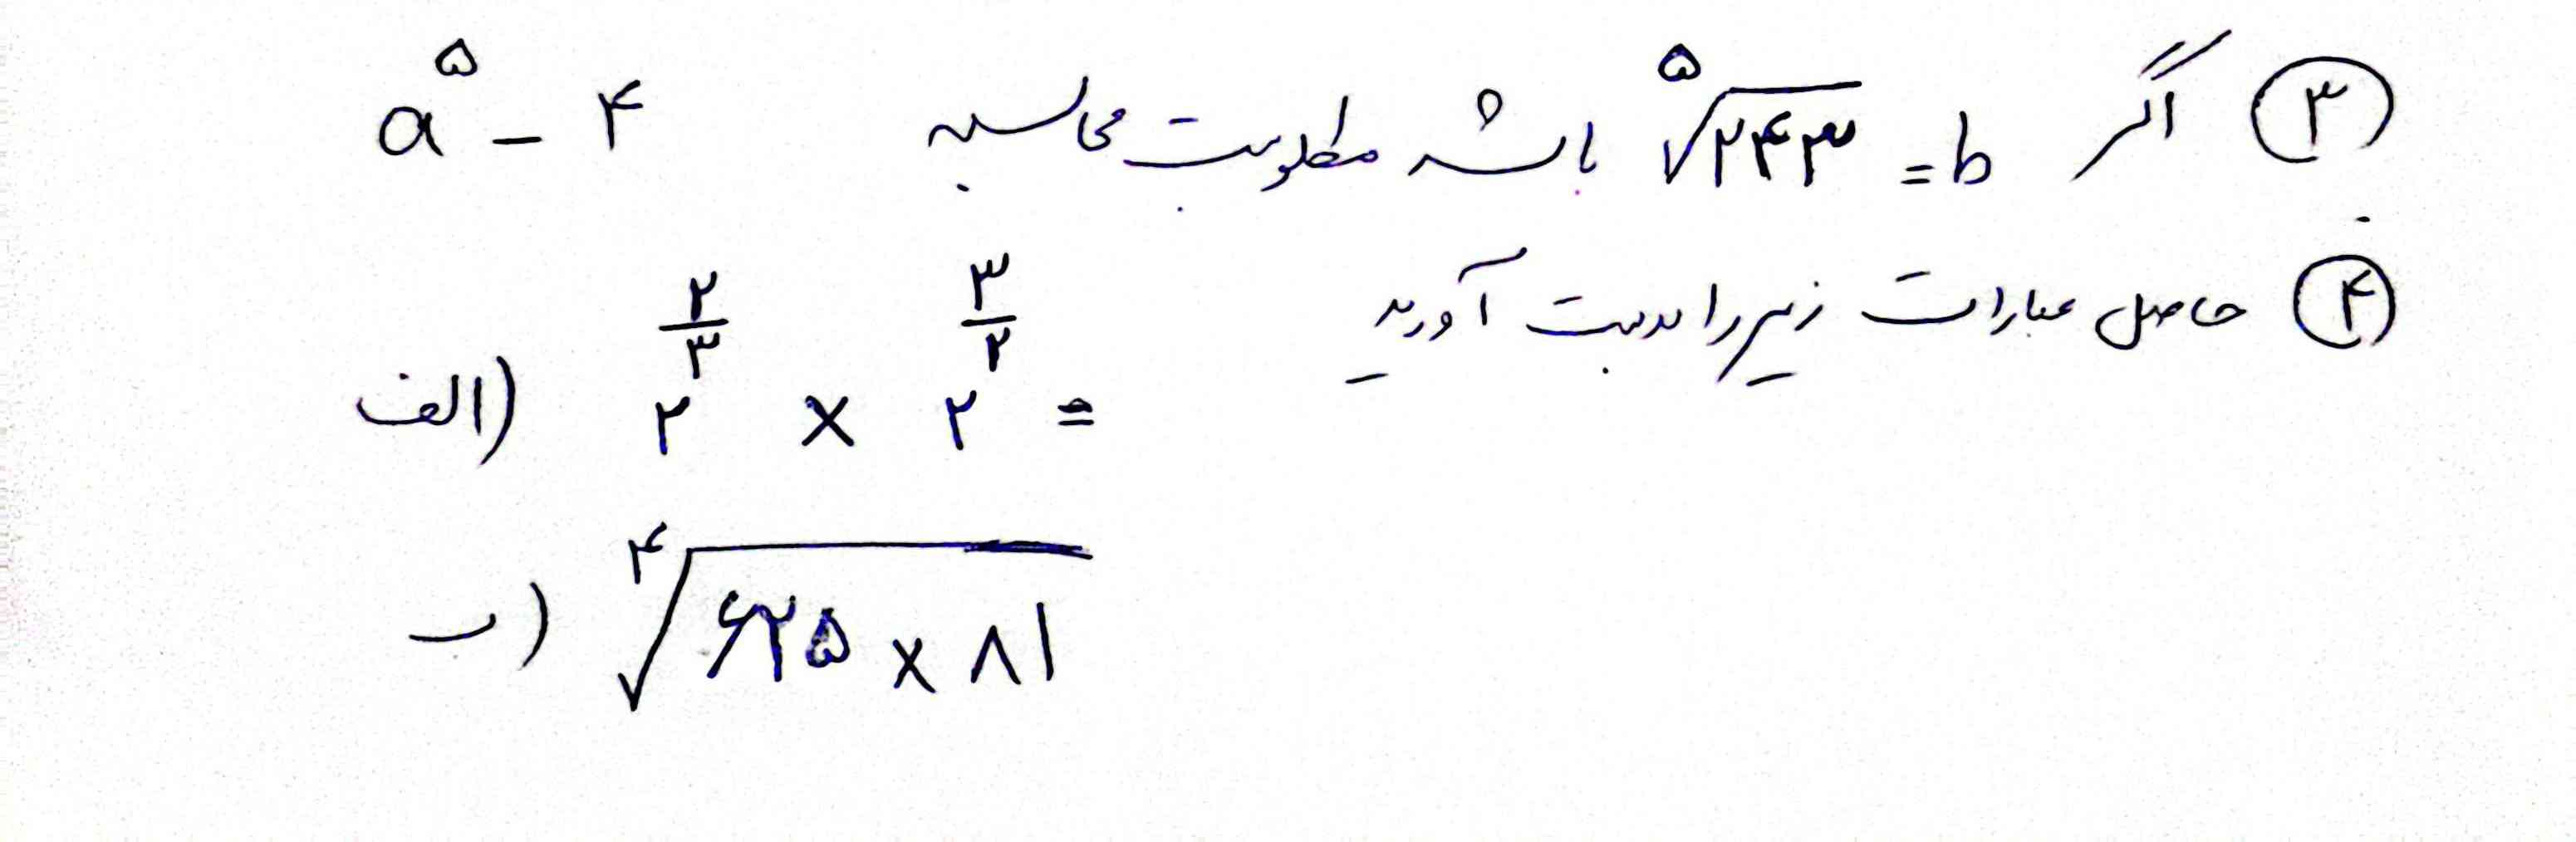 ③ اگر b = ⁵√۲۴۳ باشد مطلوبست محاسبه a⁵ - ۴
④ حاصل عبارات زیر را بدست آورید
الف) ۲^(۲/۳) × ۲^(۳/۲) =
ب) ⁴√(۶۲۵ × ۸۱)